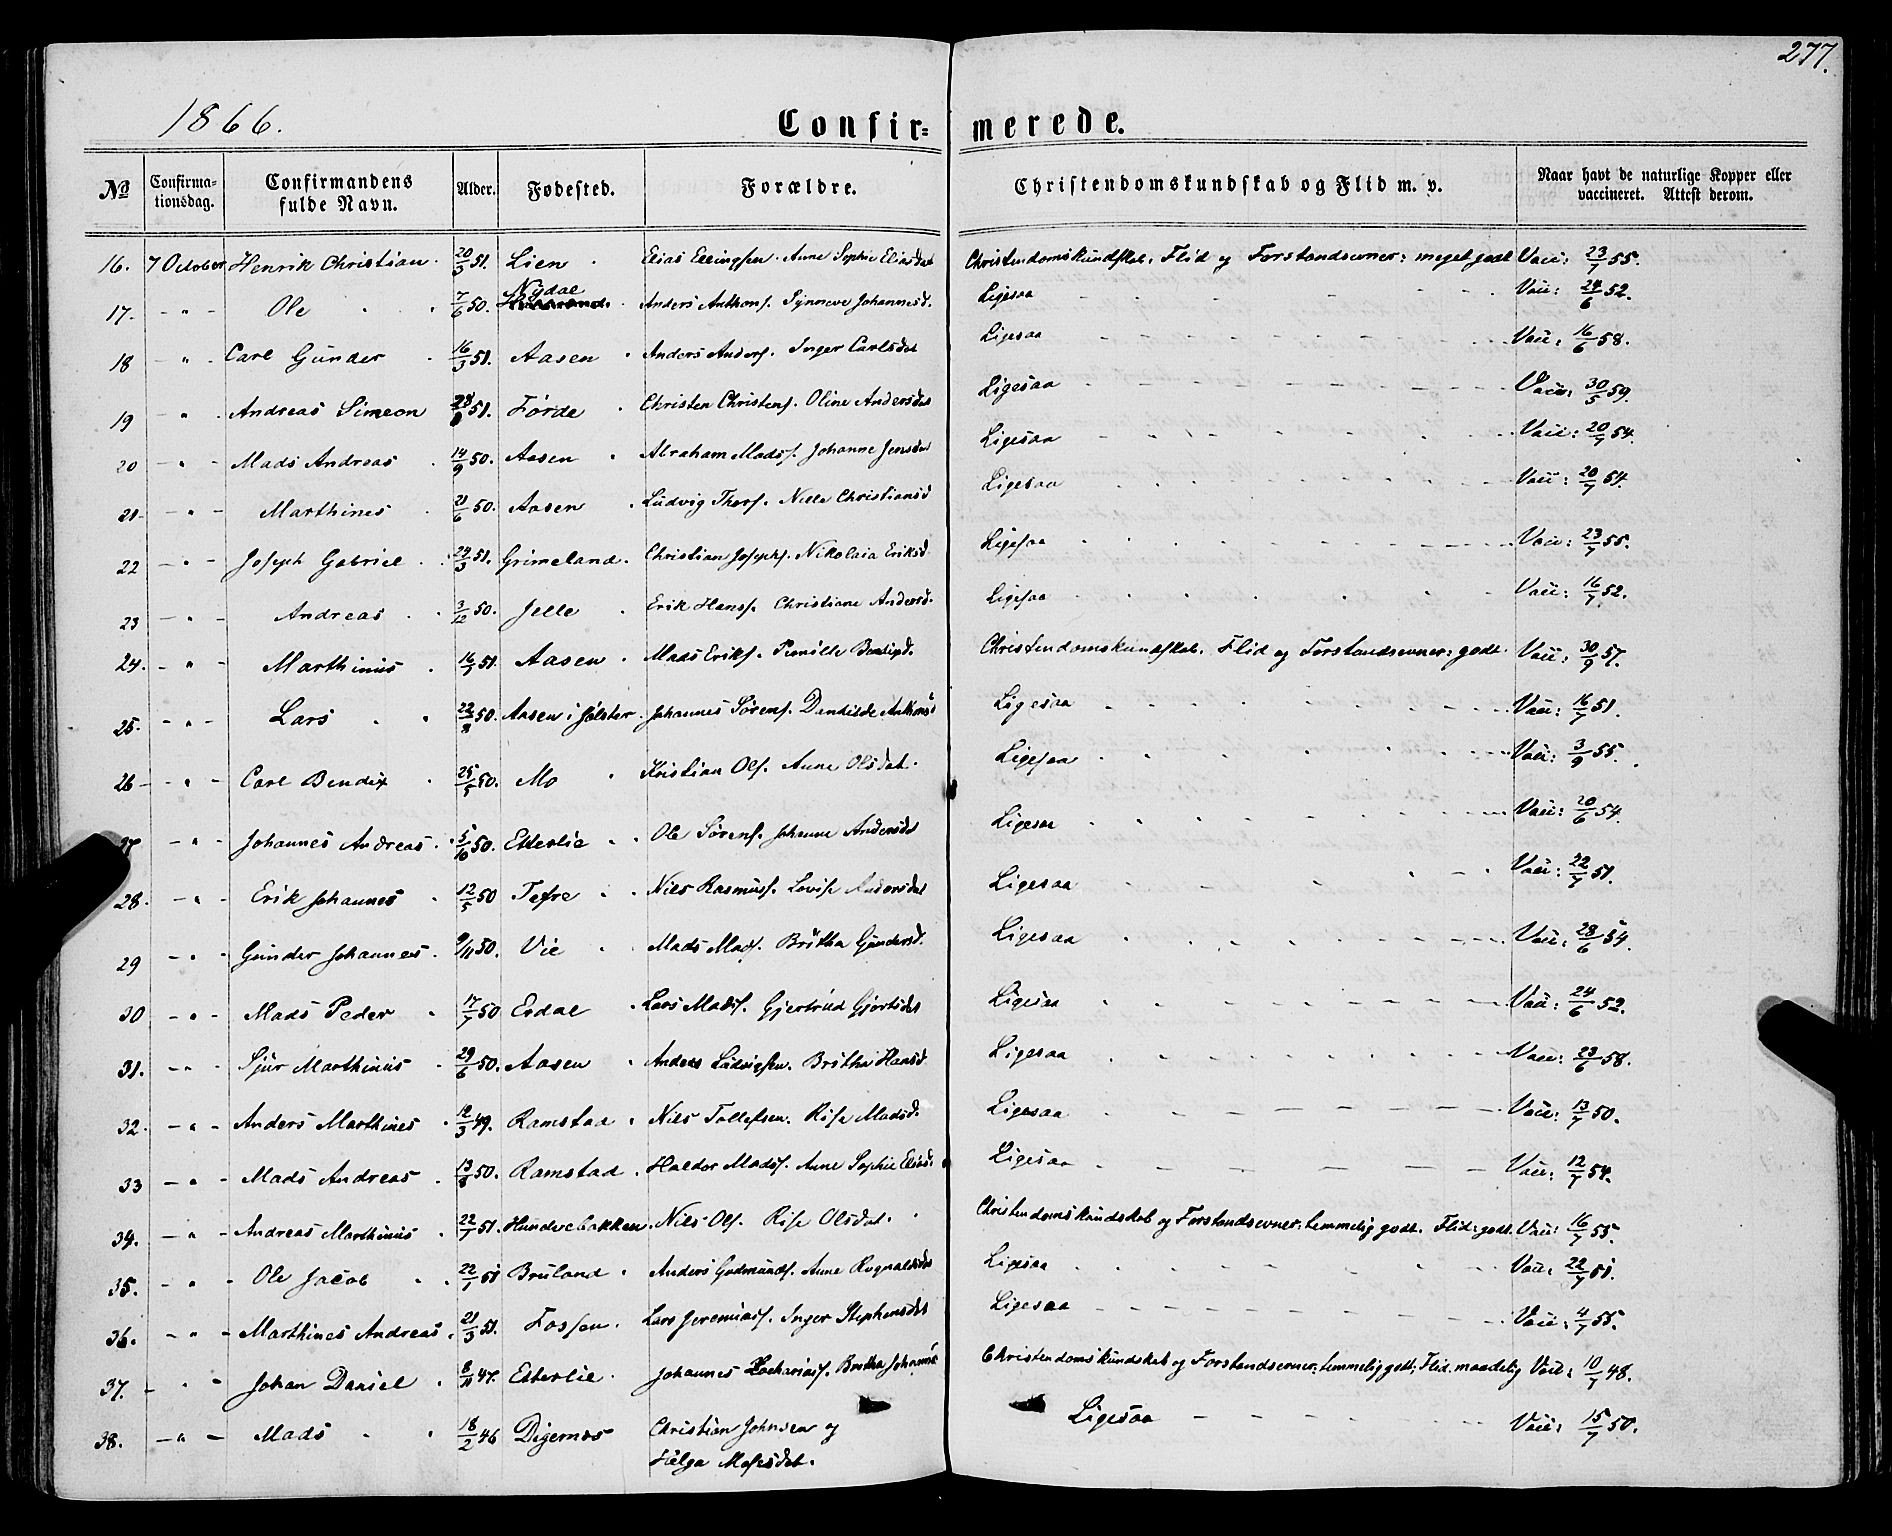 277.
1866.
Confir= merede.
No Confirmationsdag. Confirmandens fulde Navn. Alder. Fødested. Forældre. Christendomskundskab og Flid m. v. Naar havt de naturlige Kopper eller vaccineret. Attest derom.
16. 7 October Henrik Christian 20/3 51. Lien Elias Ellingsen. Anne Sophie Eliasdat Christendomskundskab, Flid og Forstandsevner: meget godt Vacc: 23/7 55.
17. - " - Ole 7/6 50. Nydal Anders Anthons. Synneve Johannesd. Ligesaa Vacc: 24/6 52.
18 - " - Carl Gunder 16/3 51. Aasen Anders Anders. Inger Carlsdat Ligesaa Vacc: 16/6 58.
19 - " - Andreas Simeon 51. Førde Christen Christens. Oline Andersdat Ligesaa Vacc: 30/5 59.
20 - " - Mads Andreas 14/9 50. Aasen Abraham Mads. Johanne Jensdat Ligesaa Vacc: 20/7 54.
21 - " - Marthines 21/6 50. Aasen Ludvig Thors. Nille Christiansd Ligesaa Vacc: 20/7 54.
22 - " - Joseph Gabriel 29/3 51. Grimeland. Christian Josephs. Nikolaia Eriksd. Ligesaa Vacc: 23/7 55.
23 - " - Andreas 3/12 50. Jelle Erik Hans. Christiane Andersd. Ligesaa Vacc: 16/7 52.
24. - " - Marthinus 16/1 51. Aasen Mads Eriks. Pernille Christendomskundskab, Flid og Forstandsevner: godt. Vacc: 30/9 57.
25. - " - Lars 22/8 50. Aasen i Jølster. Johannes Sørens. Danhilde Anthons Ligesaa Vacc: 16/7 51.
26 - " - Carl Bendix 25/5 50. Mo Kristian Ols. Anne Olsdat. Ligesaa Vacc: 3/9 55.
27 - " - Johannes Andreas. 5/10 50. Etterlie Ole Sørens. Johanne Andersdat Ligesaa Vacc: 20/6 54.
28. - " - Erik Johannes 12/5 50 Tefre Nils Rasmuss. Lovise Andersdat Ligesaa Vacc: 22/7 51.
29 - " - Gunder Johannes. 9/11 50. Vie Mads Mads. Britha Gundersd. Ligesaa Vacc: 28/6 54.
30 - " - Mads Peder 17/7 50 Erdal Lars Mads. Gjertrud Gjertsdat Ligesaa Vacc: 24/6 52.
31. - " - Sjur Marthinus 29/6 50. Aasen Anders Ludvigsen. Britha Hansd. Ligesaa Vacc: 23/6 58.
32. - " - Anders Marthines 12/3 49. Ramstad Nils Tollefsen. Rise Madsd. Ligesaa Vacc: 13/7 50.
33 - " - Mads Andreas 13/8 50. Ramstad Haldor Mads. Anne Sophie Eliasd. Ligesaa Vacc: 12/7 54.
34. - " - Andreas Marthinus 22/1 51. Hundvebakken. Nils Ols. Rise Olsdat. Christendomskundskab og Forstandsevner: temmelig godt. Flid: godt. Vacc: 16/7 55.
35. - " - Ole Jacob 22/1 51 Bruland Anders Gudmunds. Anne Rognaldsdat Ligesaa Vacc: 22/7 51.
36. - " - Marthines Andreas. 21/3 51. Fossen. Lars Jeremiass. Inger Stephensdat Ligesaa Vacc: 4/7 55.
37. - " - Johan Daniel 8/11 47. Etterlie. Johannes Zachariass. Britha Johanns Christendomskundskab og Forstandsevner: temmelig godt; Flid: maadelig Vacc: 10/7 48.
38. - " - Mads 18/2 46 Digernæs Christian Johnsen og Ligesaa Vacc: 15/7 50.
Helga